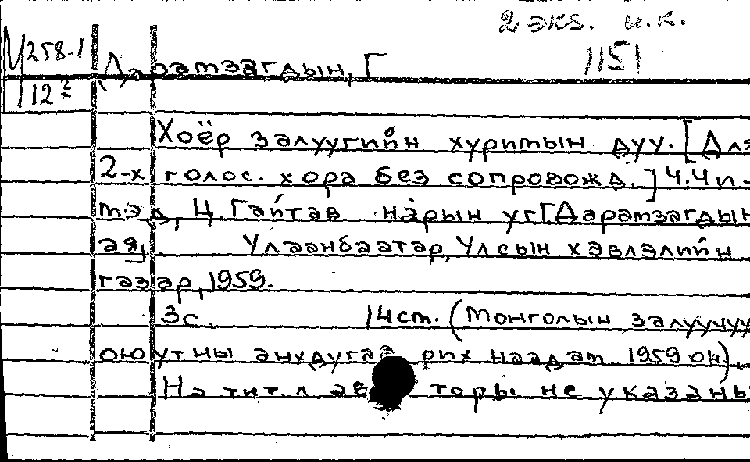 2 экз. и.к.
М 258-1 1151
12² Дарамзагдын, Г
Хоёр залуугийн хуримын дуу. [Для
2-х голос. хора без сопровожд.] Ч. Чи-
мэд, Ц. Гайтав нарын уг [Дарамзагдын
ая]. Улаанбаатар, Улсын хэвлэлийн
газар, 1959.
3с. 14см. (Монголын залуучуу
оюутны анхдугаа их наадам 1959 он).
На тит. л. торы не указаны